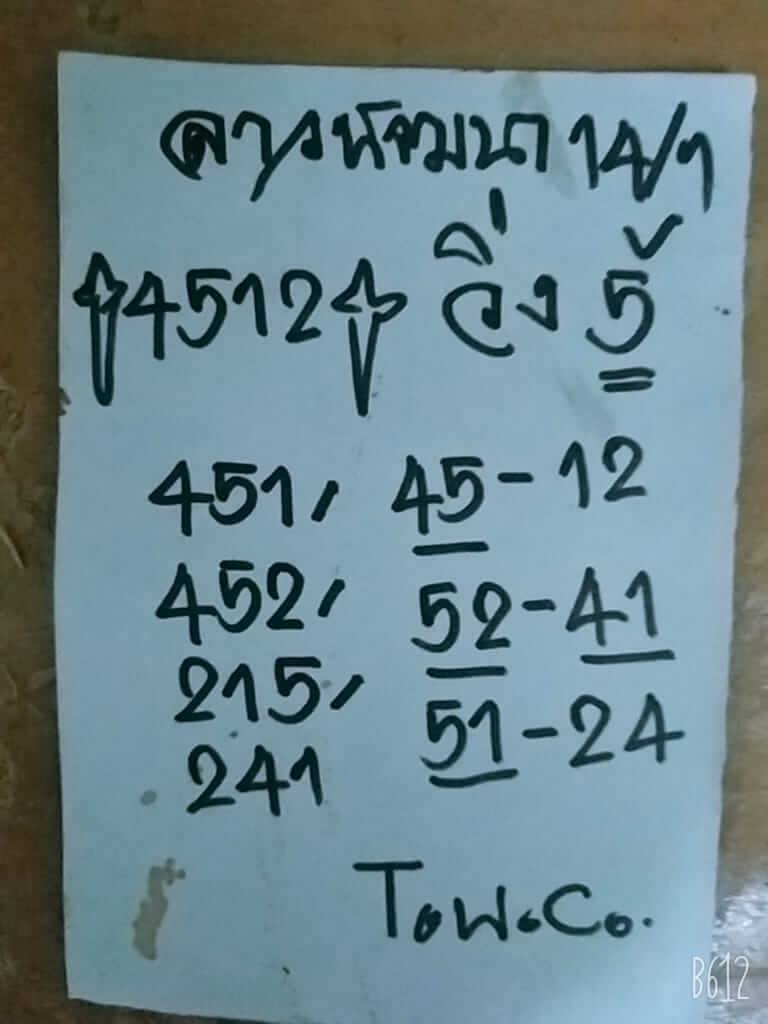 ลาวพัฒนา 14/1
4512 วิ่ง 5
451, 45-12
452, 52-41
215, 51-24
241
T.W.Co.
B612